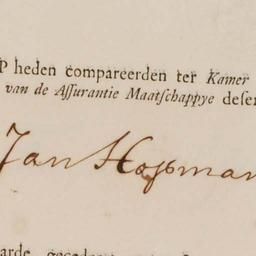 P heden compareerden ter Kamer
van de Aſſurantie Maatſchappye deſer
Jan Hopman
arde